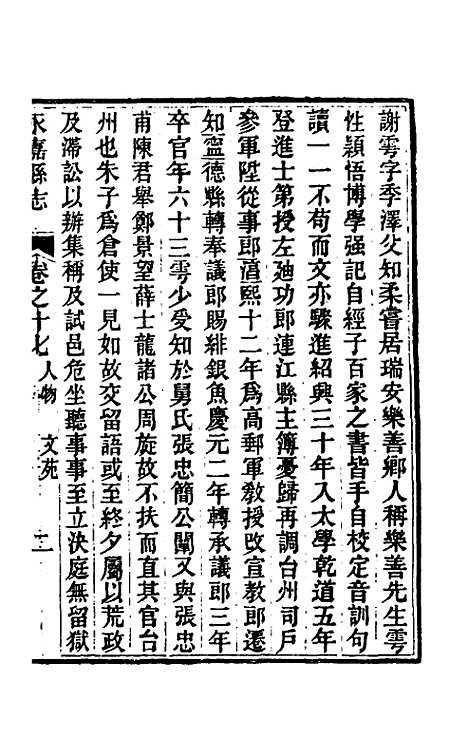 謝雩字季澤父知柔嘗居瑞安樂善鄉人稱樂善先生雩
性穎悟博學强記自經子百家之書皆手自校定音訓句
讀一一不苟而文亦驟進紹興三十年入太學乾道五年
登進士第授左廸功郎連江縣主簿憂歸再調台州司戶
參軍陞從事郎淳熙十二年爲高郵軍敎授改宣敎郎遷
知寍德縣轉奉議郎賜緋銀魚慶元二年轉承議郎三年
卒官年六十三雩少受知於舅氏張忠簡公闡又與張忠
甫陳君舉鄭景望薛士龍諸公周旋故不扶而直其官台
州也朱子爲倉使一見如故交留語或至終夕屬以荒政
及滯訟以辦集稱及試邑危坐聽事事至立決庭無留獄
永嘉縣志 卷之十七 人物 文苑